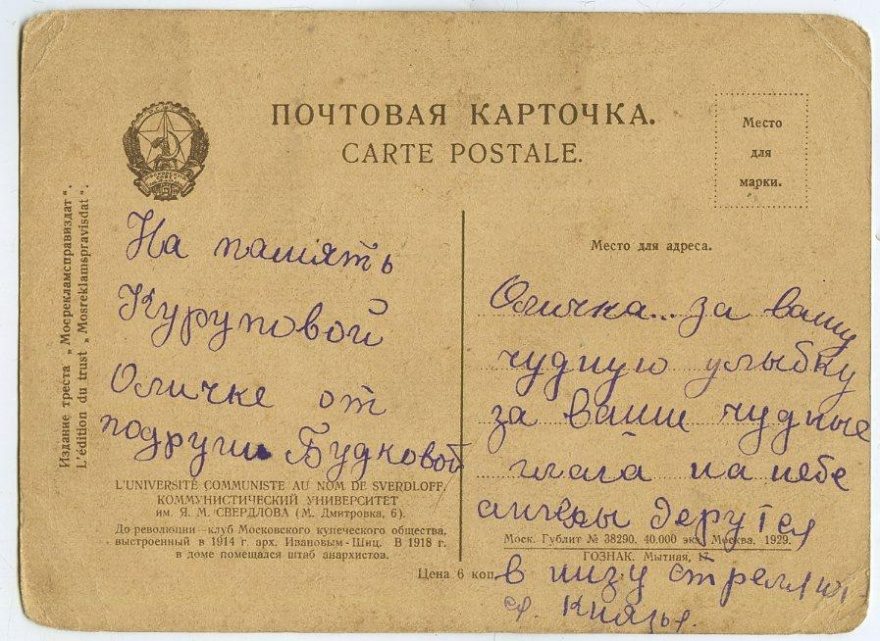 ПОЧТОВАЯ КАРТОЧКА.
CARTE POSTALE.
Место
для
марки.
Издание треста „Мосрекламсправиздат".
L'édition du trust „Mosreklamspravisdat".
На память
Куруповой
Оличке от
подруги Будковой
L'UNIVERSITÉ COMMUNISTE AU NOM DE SVERDLOFF.
КОММУНИСТИЧЕСКИЙ УНИВЕРСИТЕТ
им. Я. М. СВЕРДЛОВА (М. Дмитровка, 6).
До революции—клуб Московского купеческого общества,
выстроенный в 1914 г. арх. Ивановым-Шиц. В 1918 г.
в доме помещался штаб анархистов.
Цена 6 коп.
Место для адреса.
Оличка... за вашу
чудную улыбку
за ваши чудные
глаза на небе
ангелы дерутся
в низу стреляют-
ся князья.
Моск. Гублит № 38290. 40.000 экз. Москва. 1929.
ГОЗНАК. Мытная,